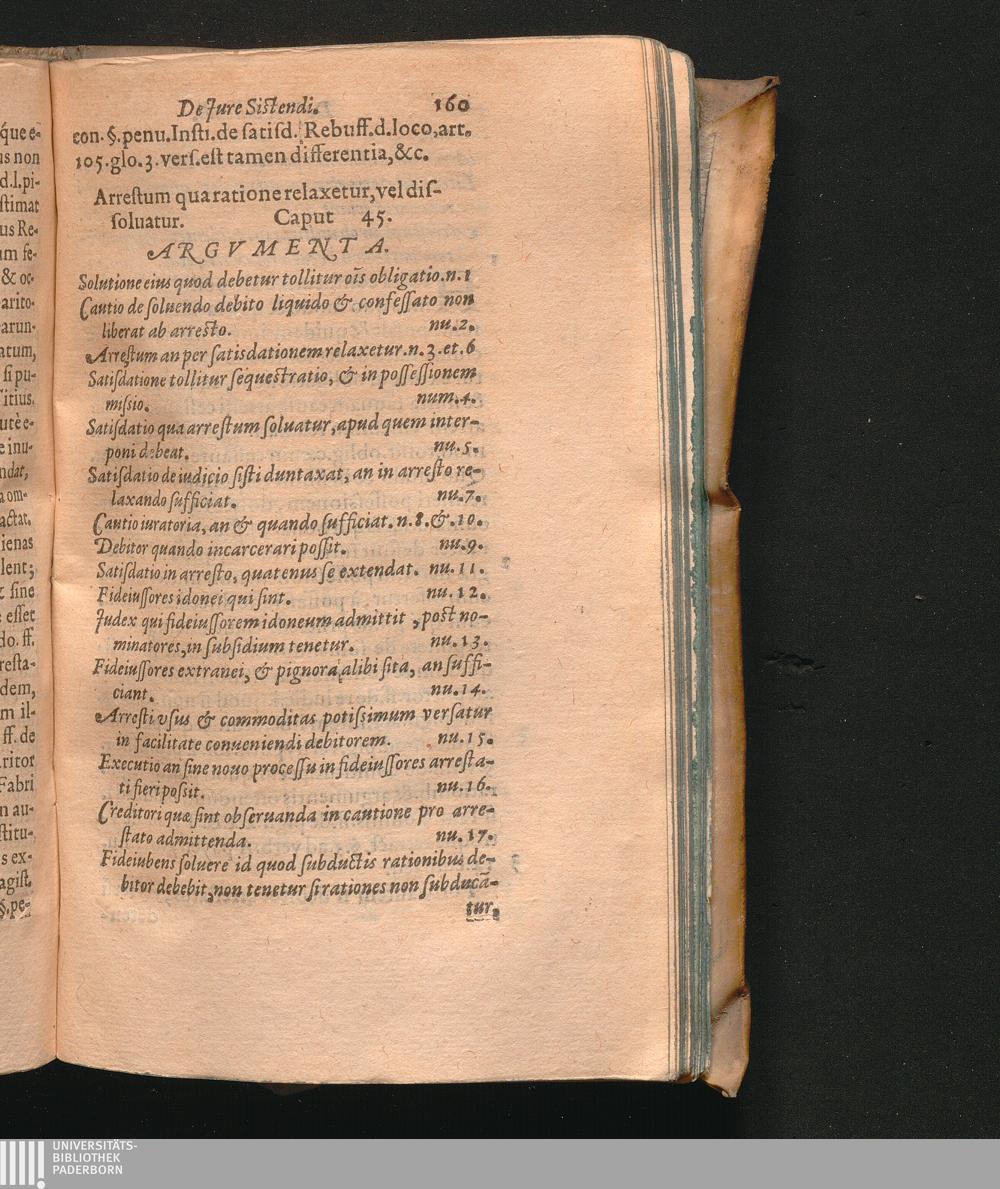 De Jure Sistendi. 160
con. §. penu. Insti. de satisd. Rebuff. d. loco, art.
105. glo. 3. vers. est tamen differentia, &c.
Arrestum qua ratione relaxetur, vel dis-
soluatur. Caput 45.
ARGVMENTA.
Solutione eius quod debetur tollitur oīs obligatio. n. 1
Cautio de soluendo debito liquido & confessato non
liberat ab arresto. nu. 2.
Arrestum an per satisdationem relaxetur. n. 3. et. 6
Satisdatione tollitur sequestratio, & in possessionem
missio. num. 4.
Satisdatio qua arrestum soluatur, apud quem inter-
poni debeat. nu. 5.
Satisdatio de iudicio sisti duntaxat, an in arresto re-
laxando sufficiat. nu. 7.
Cautio iuratoria, an & quando sufficiat. n. 8. & 10.
Debitor quando incarcerari possit. nu. 9.
Satisdatio in arresto, quatenus se extendat. nu. 11.
Fideiussores idonei qui sint. nu. 12.
Judex qui fideiussorem idoneum admittit, post no-
minatores, in subsidium tenetur. nu. 13.
Fideiussores extranei, & pignora alibi sita, an suffi-
ciant. nu. 14.
Arresti vsus & commoditas potissimum versatur
in facilitate conueniendi debitorem. nu. 15.
Executio an sine nouo processu in fideiussores arresta-
ti fieri possit. nu. 16.
Creditori quæ sint obseruanda in cautione pro arre-
stato admittenda. nu. 17.
Fideiubens soluere id quod subductis rationibus de-
bitor debebit, non tenetur si rationes non subducā-
tur,
que e-
us non
d. l. pi-
stimat
us Re-
um fe-
& oc-
arito-
arun-
atum,
si pu-
itius.
utè e-
e inu-
ndat,
a om-
actat.
ienas
lent;
t sine
e esset
do. ff.
resta-
dem,
m il-
ff. de
ritor
Fabri
n au-
stitu-
s ex-
agist.
§. pe-
UNIVERSITÄTS-
BIBLIOTHEK
PADERBORN